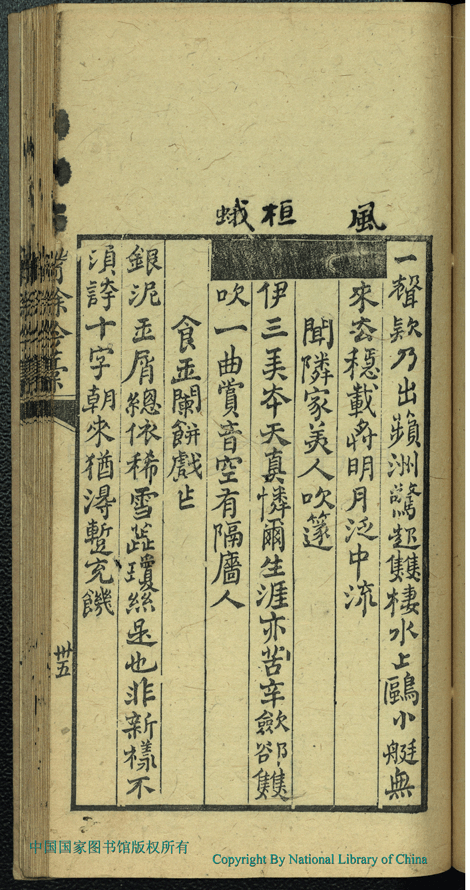 風
桓
蛾
一聲欵乃出蘋洲驚起雙棲水上鷗小艇無
來去穩載將明月泛中流
聞隣家美人吹篴
伊三美夲天真憐爾生涯亦苦辛歛卻雙
吹一曲賞音空有隔廧人
食玉闌餅戲占
銀泥玉屑總依稀雪虀瓊絲是也非新樣不
湏誇十字朝來猶淂蹔充饑
卅五
中国国家图书馆版权所有
Copyright By National Library of China